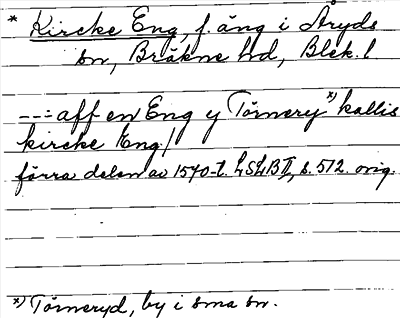 * Kircke Eng, f. äng i Åryds
sn, Bräkne hd, Blek. l
--- aff en Eng y Törnery *) kallis
kircke Eng /
förra delen av 1540-t. LSLB II, s. 512. orig.
*) Törneryd, by i sma sn.